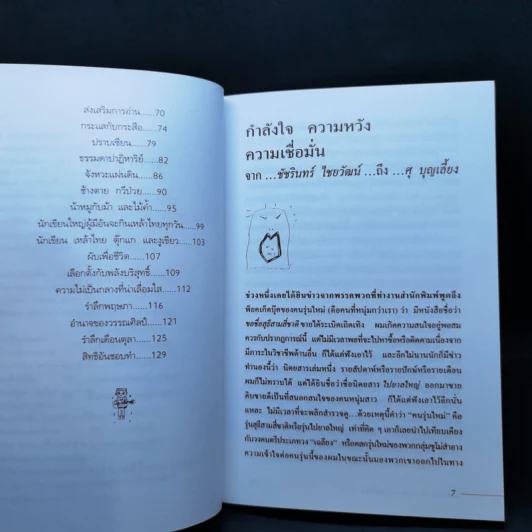 ส่งเสริมการอ่าน......70
กระแสกับกระสือ......74
ปราบเซียน......79
ธรรมดาปาฏิหาริย์......82
จังหวะแผ่นดิน......86
ช้างตาย กวีป่วย......90
น้าหมูกับม้า และไม้ค้ำ......95
นักเขียนใหญ่ผู้มีอันจะกินเหล้าไทยทุกวัน......99
นักเขียน เหล้าไทย ตุ๊กแก และงูเขียว......103
ผับเพื่อชีวิต......107
เลือกตั้งกับพลังบริสุทธิ์......109
ความไม่เป็นกลางที่น่าเลื่อมใส......112
รำลึกพฤษภา......116
อำนาจของวรรณศิลป์......121
รำลึกเดือนตุลา......125
สิทธิอันชอบทำ......129
กำลังใจ ความหวัง
ความเชื่อมั่น
จาก ...ชัชรินทร์ ไชยวัฒน์ ...ถึง ...ศุ บุญเลี้ยง
ช่วงหนึ่งเคยได้ยินข่าวจากพรรคพวกที่ทำงานสำนักพิมพ์พูดถึง
พ็อคเก็ตบุ๊คของคนรุ่นใหม่ (คือคนที่หนุ่มกว่าเรา) ว่า มีหนังสือชื่อว่า
ขอชื่อสุธีสามสี่ชาติ ขายได้ระเบิดเถิดเทิง ผมเกิดความสนใจอยู่พอสม
ควรกับปรากฏการณ์นี้ แต่ไม่มีเวลาพอที่จะไปหาซื้อหรือติดตามเนื่องจาก
มีภาระในวิชาชีพด้านอื่น ก็ได้แต่ฟังเอาไว้ และอีกไม่นานนักก็มีข่าว
ทำนองนี้ว่า นิตยสารเล่มหนึ่ง รายสัปดาห์หรือรายปักษ์หรือรายเดือน
ผมก็ไม่ทราบได้ แต่ได้ยินชื่อว่าชื่อนิตยสาร ไปยาลใหญ่ ออกมาขาย
ดิบขายดีเป็นที่สนอกสนใจของคนหนุ่มสาว ก็ได้แต่ฟังเอาไว้อีกนั่น
แหละ ไม่มีเวลาที่จะพลิกสำรวจดู...ด้วยเหตุนี้คำว่า "คนรุ่นใหม่" คือ
รุ่นสุธีสามสี่ชาติหรือรุ่นไปยาลใหญ่ เท่าที่คิด ๆ เอาก็เลยนำไปเทียบเคียง
กับวงดนตรีประเภทวง "เฉลียง" หรือตลกรุ่นใหม่ของพวกกลุ่มซูโม่สำอาง
ความเข้าใจต่อคนรุ่นนี้ของผมในขณะนั้นมองพวกเขาออกไปในทาง
7